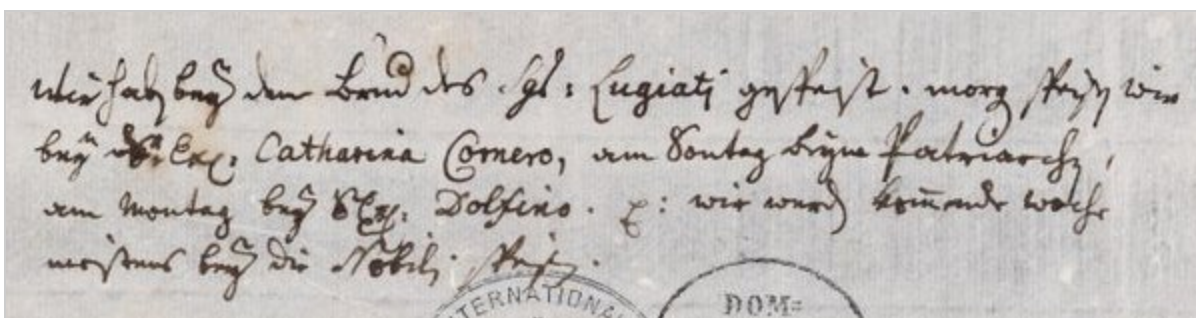 Wir haben bey dem Brud des Sg: Lugiati gespeist. morg speisen wir
bey Exc: Catharina Cornero, am Sontag beym Patriarchen,
am Montag bey S: Exc: Dolfino. wir werden kom̅ende woche
meistens bey die Nobili speisen.
INTERNATIONA
DOM=